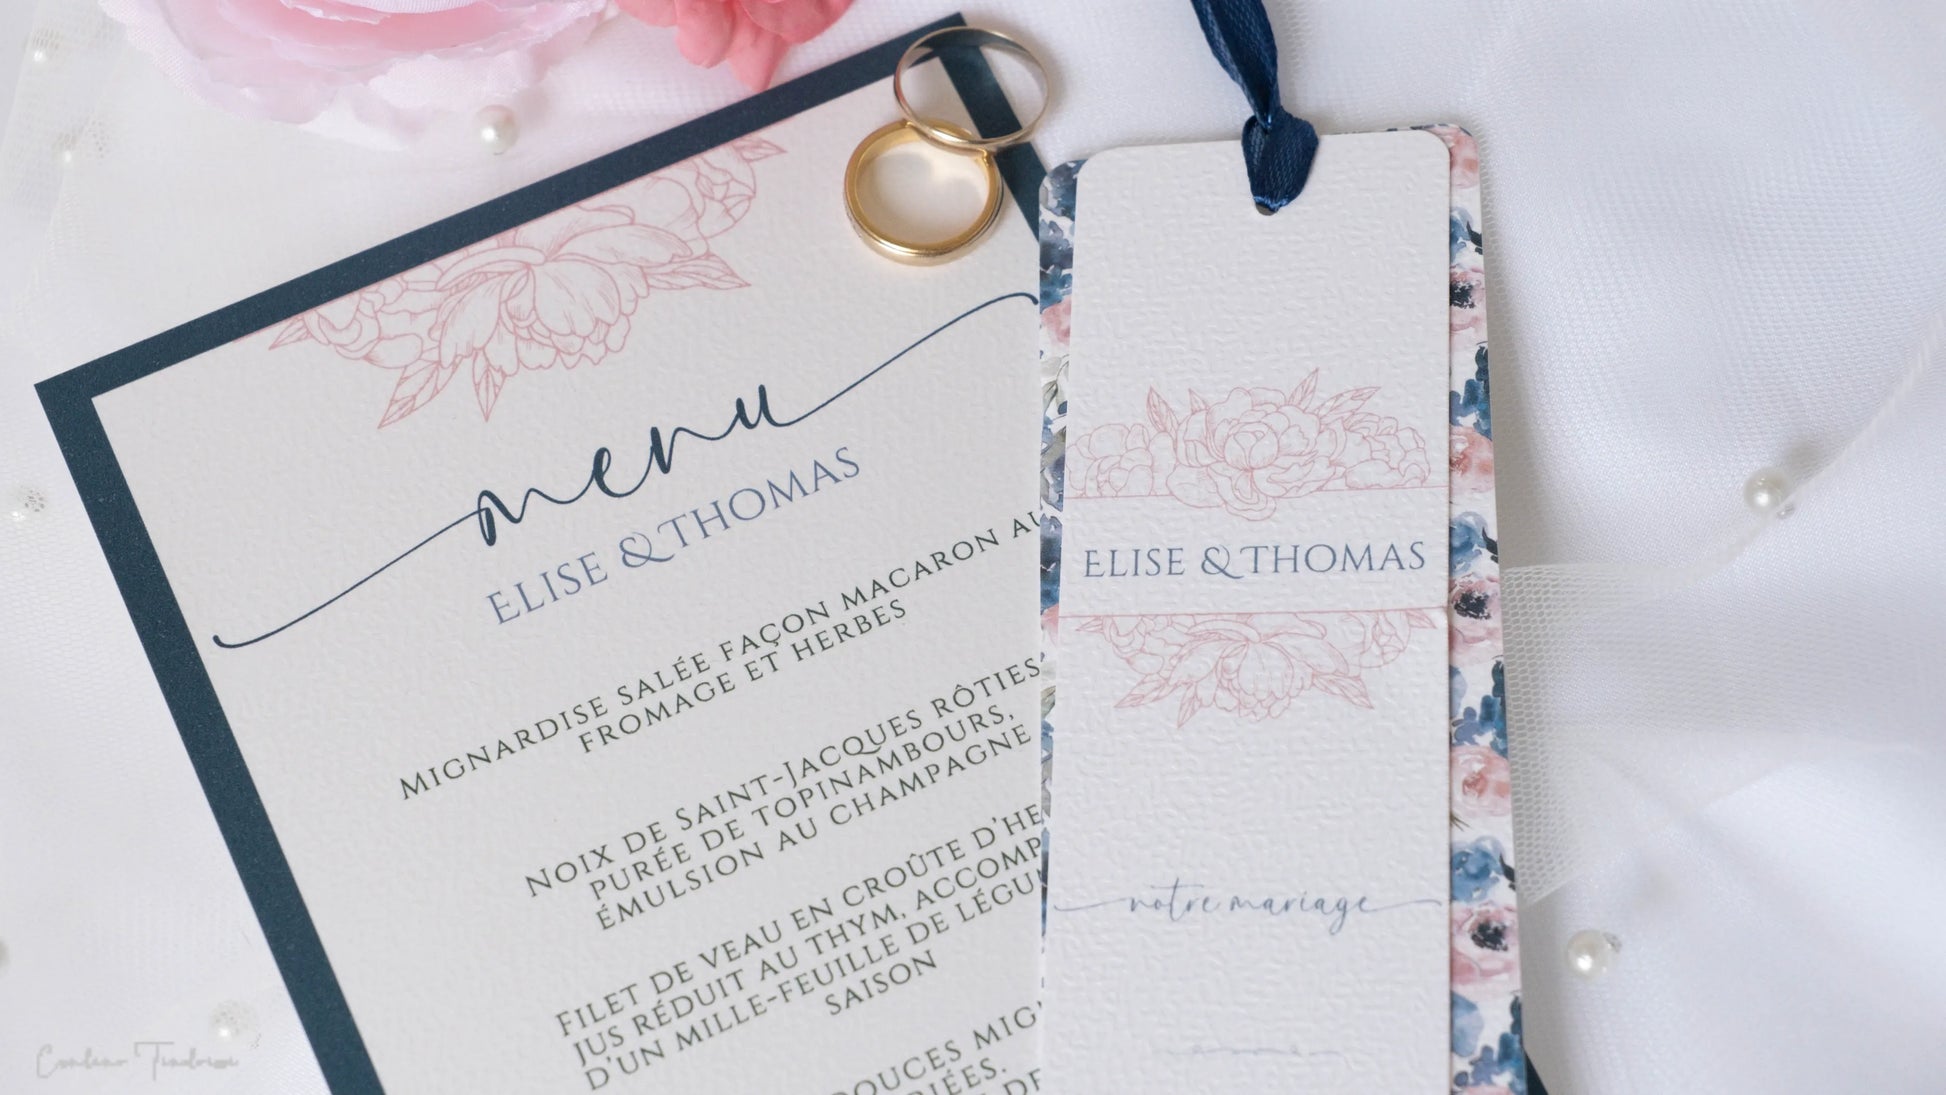 menu
ELISE & THOMAS
MIGNARDISE SALÉE FAÇON MACARON AU
FROMAGE ET HERBES
NOIX DE SAINT-JACQUES RÔTIES
PURÉE DE TOPINAMBOURS,
ÉMULSION AU CHAMPAGNE
FILET DE VEAU EN CROÛTE D'HE
JUS RÉDUIT AU THYM, ACCOMP
D'UN MILLE-FEUILLE DE LÉGU
SAISON
OUCES MIG
IÉES.
DE
ELISE & THOMAS
notre mariage